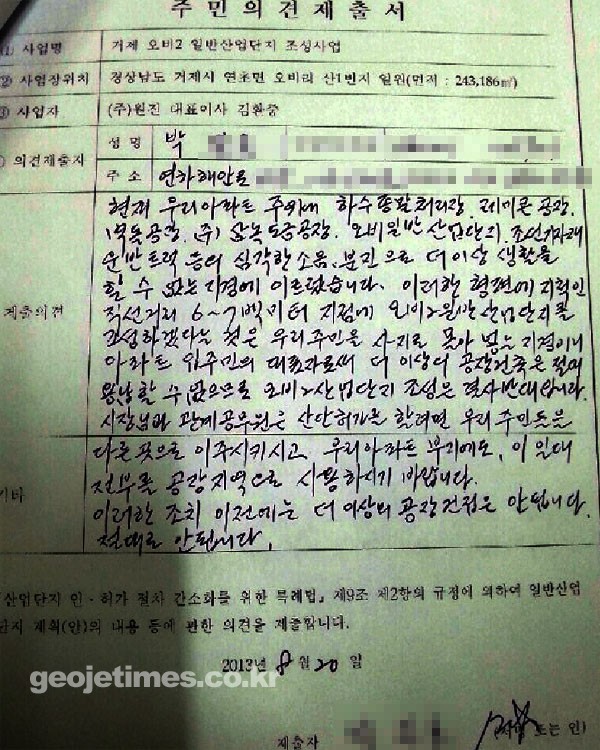 주 민 의 견 제 출 서
(1) 사업명 거제 오비2 일반산업단지 조성사업
② 사업장위치 경상남도 거제시 연초면 오비리 산1번지 일원(면적 : 243,186㎡)
③ 사업자 (주)원진 대표이사 김환중
의견제출자 성 명 박
주 소 연하해안로
현재 우리아파트 주위에 하수종말처리장, 레미콘 공장,
벽돌공장, (주) 삼녹도금공장, 오비일반산업단지, 조선기자재
운반트럭 등의 심각한 소음, 분진으로 더이상 생활을
할 수 없는 지경에 이르렀습니다. 이러한 형편에 지척인
제출의견 직선거리 6~7백미터 지점에 오비2일반산업단지를
조성하겠다는 것은 우리주민을 사지로 몰아 넣는 지경이니
아파트 입주민의 대표자로써 더 이상의 공장건축은 절대
용납할 수 없으므로 오비2산업단지 조성은 결사반대합니다.
시장님과 관계공무원은 산단허가를 할려면 우리 주민들을
다른 곳으로 이주시키시고, 우리아파트 부지에도, 이 일대
기타 전부를 공장지역으로 사용하시기 바랍니다.
이러한 조치 이전에는 더 이상의 공장건정은 안됩니다.
절대로 안됩니다.
산업단지 인·허가 절차 간소화를 위한 특례법」 제9조 제2항의 규정에 의하여 일반산업
단지 계획(안)의 내용 등에 관한 의견을 제출합니다.
2013년 8월 20일
geojetimes.co.kr
제출자 (서명 또는 인)